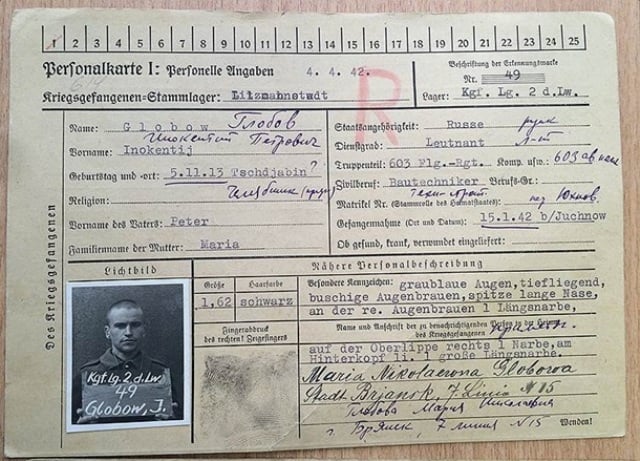 1 2 3 4 5 6 7 8 9 10 11 12 13 14 15 16 17 18 19 20 21 22 23 24 25
Personalkarte I: Personelle Angaben 4.4.42.
Beschriftung der Erkennungsmarke
Nr. 49
Kriegsgefangenen=Stammlager: Litzmannstadt
Lager: Kgf. Lg. 2 d.Lw.
R
Des Kriegsgefangenen
Name: Globow Глобов
Иннокентий Петрович
Vorname: Inokentij
Geburtstag und =ort: 5.11.13 Tschdjabin?
Religion:
Vorname des Vaters: Peter
Familienname der Mutter: Maria
Staatsangehörigkeit: Russe русск
Dienstgrad: Leutnant Л-т
Truppenteil: 603 Flg.-Rgt. Komp. usw.: 603
Zivilberuf: Bautechniker Berufs=Gr.:
Matrikel Nr. (Stammrolle des Heimatstaates): под Юхнов
Gefangennahme (Ort und Datum): 15.1.42 b/Juchnow
Ob gesund, krank, verwundet eingeliefert:
Lichtbild
Kgf.Lg.2 d.Lw
49
Globow, J.
Größe Haarfarbe
1,62 schwarz
Fingerabdruck
des rechten! Zeigefingers
Nähere Personalbeschreibung
Besondere Kennzeichen: graublaue Augen, tiefliegend,
buschige Augenbrauen, spitze lange Nase,
an der re. Augenbrauen 1 Längsnarbe,
Name und Anschrift der zu benachrichtigenden Person in der Heimat
des Kriegsgefangenen
auf der Oberlippe rechts 1 Narbe, am
Hinterkopf li. 1 große Längsnarbe.
Maria Nikolaewna Globowa
Stadt Brjansk, 7. Linie N 15
Глобова Мария Николаевна
г. Брянск, 7 линия N 15
Wenden!